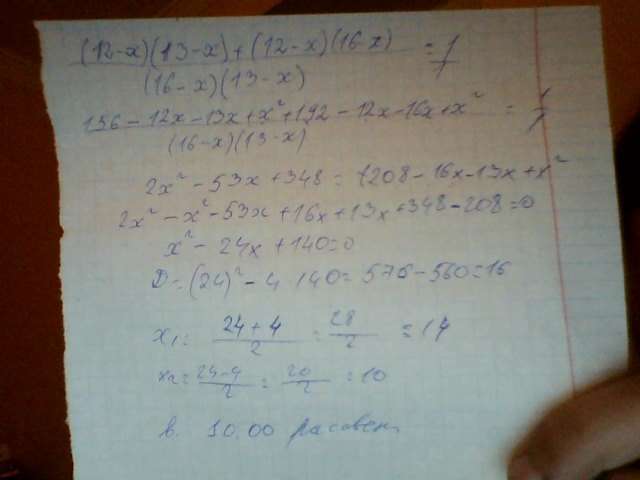 (12-x)(13-x)+(12-x)(16-x) = 1
(16-x)(13-x) 1
156-12x-13x+x²+192-12x-16x+x² = 1
(16-x)(13-x) 1
2x²-53x+348=1208-16x-13x+x²
2x²-x²-53x+16x+13x+348-208=0
x²-24x+140=0
D=(24)²-4 140=576-560=16
x₁= 24+4 = 28 = 14
2 2
x₂= 24-4 = 20 = 10
2 2
в. 10.00